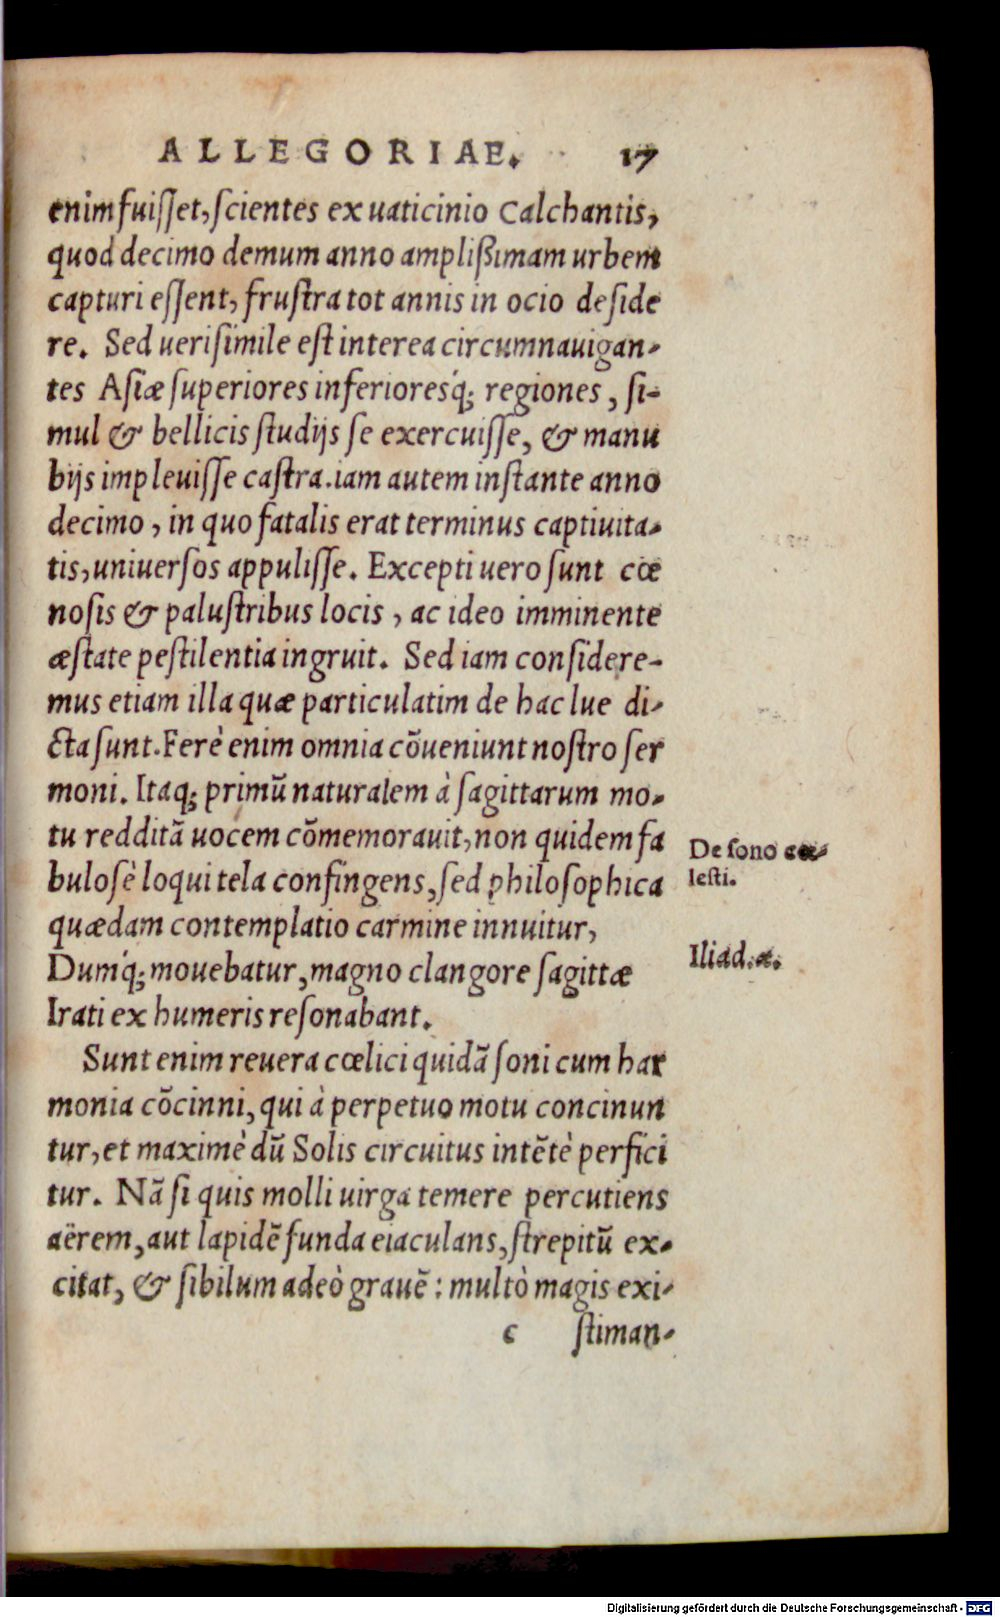 ALLEGORIAE. 17
enim fuiſſet, ſcientes ex uaticinio Calchantis,
quod decimo demum anno ampliſſimam urbem
capturi eſſent, fruſtra tot annis in ocio deſide
re. Sed ueriſimile eſt interea circumnauigan-
tes Aſiæ ſuperiores inferioresq́; regiones, ſi-
mul & bellicis ſtudijs ſe exercuiſſe, & manu
bijs impleuiſſe caſtra. iam autem inſtante anno
decimo, in quo fatalis erat terminus captiuita-
tis, uniuerſos appuliſſe. Excepti uero ſunt cœ
noſis & paluſtribus locis, ac ideo imminente
æſtate peſtilentia ingruit. Sed iam conſidere-
mus etiam illa quæ particulatim de hac lue di-
cta ſunt. Ferè enim omnia cōueniunt noſtro ſer
moni. Itaq; primū naturalem à ſagittarum mo-
tu redditā uocem cōmemorauit, non quidem fa
buloſè loqui tela confingens, ſed philoſophica
quædam contemplatio carmine innuitur,
Dumq́; mouebatur, magno clangore ſagittæ
Irati ex humeris reſonabant.
Sunt enim reuera cœlici quidā ſoni cum har
monia cōcinni, qui à perpetuo motu concinun
tur, et maximè dū Solis circuitus intētè perfici
tur. Nā ſi quis molli uirga temere percutiens
aërem, aut lapidē funda eiaculans, ſtrepitū ex-
citat, & ſibilum adeò grauē: multò magis exi-
c ſtiman-
De ſono cœ-
leſti.
Iliad. α.
Digitalisierung gefördert durch die Deutsche Forschungsgemeinschaft - DFG